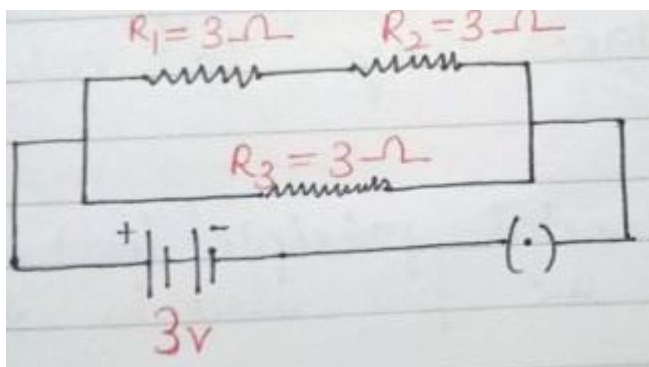 R₁ = 3Ω R₂ = 3Ω
R₃ = 3Ω
+ -
3v